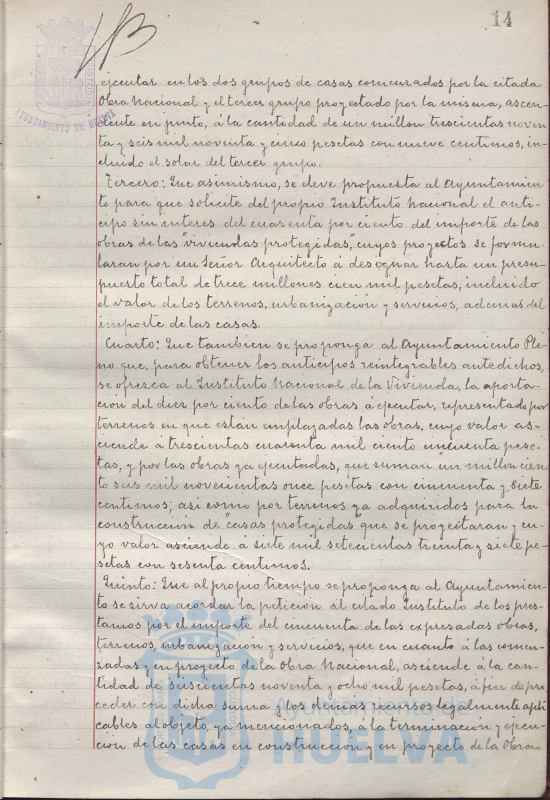 14
AYUNTAMIENTO DE HUELVA
ejecutar en los dos grupos de casas comenzados por la citada
Obra Nacional y el tercer grupo proyectado por la misma, ascen-
dente en junto, á la cantidad de un millon trescientas noven
ta y seis mil noventa y cinco pesetas con nueve centimos, in-
cluido el solar del tercer grupo.
Tercero: Que asimismo, se eleve propuesta al Ayuntamien
to para que solicite del propio Instituto Nacional el anti-
cipo sin interes del cuarenta por ciento del importe de las
obras de las "viviendas protegidas", cuyos proyectos se formu-
laran por un Señor Arquitecto á designar hasta un presu-
puesto total de trece millones cien mil pesetas, incluido
el valor de los terrenos, urbanización y servicios, ademas del
importe de las casas.
Cuarto: Que tambien se proponga al Ayuntamiento Ple-
no que, para obtener los anticipos reintegrables antedichos,
se ofrezca al Instituto Nacional de la Vivienda, la aporta-
cion del diez por ciento de las obras á ejecutar, representado por
terrenos en que están emplazadas las obras, cuyo valor as-
ciende á trescientas cuarenta mil ciento cincuenta pese-
tas, y por las obras ya ejecutadas, que suman un millon cien
to seis mil novecientas once pesetas con cincuenta y siete
centimos; asi como por terrenos ya adquiridos para la
construccion de "casas protegidas" que se proyectaran y cu-
yo valor asciende á siete mil setecientas treinta y siete pe-
setas con sesenta centimos.
Quinto: Que al propio tiempo se proponga al Ayuntamien-
to se sirva acordar la petición al citado Instituto de los pres-
tamos por el importe del cincuenta de las expresadas obras,
terrenos, urbanizacion y servicios, que en cuanto á las comen-
zadas y en proyecto de la Obra Nacional, asciende á la can-
tidad de seiscientas noventa y ocho mil pesetas, á fin de pro
ceder con dicha suma y los demas recursos legalmente apli
cables al objeto, ya mencionados, á la terminación y ejecu-
cion de las casas en construcción y en proyecto de la Obra
Ayuntamiento de
HUELVA